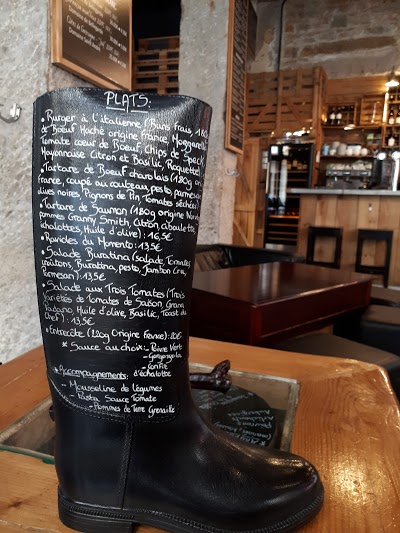 PLATS:
• Burger à l'italienne (Buns frais, 180g
de Boeuf Haché origine France, Mozzarella
Tomate coeur de Boeuf, Chips de Speck,
Mayonnaise Citron et Basilic, Roquette)
• Tartare de Boeuf charolais (180g
France, coupé au couteau, pesto, parmesan
olives noires Pignons de Pin, Tomates séchées)
• Tartare de Saumon (180g origine
pommes Granny Smith, Citron, ciboulette,
échalottes, Huile d'olive) : 16,5€
• Ravioles du Moment : 13,5€
• Salade Buratina (salade, Tomates
croutons, Buratina, pesto, Jambon Cru,
Parmesan) : 13,5€
• Salade aux Trois Tomates (Trois
Variétés de Tomates de Saison, Grana
Padano, Huile d'olive, Basilic, Toast du
Chef) : 13,5€
• Entrecôte (220g Origine France): 20€
* Sauce au choix: - Poivre Verte
- Gorgonzola
- Confit
d'échalotte
* Accompagnements:
- Mousseline de légumes
- Pasta Sauce Tomate
- Pommes de Terre Grenaille